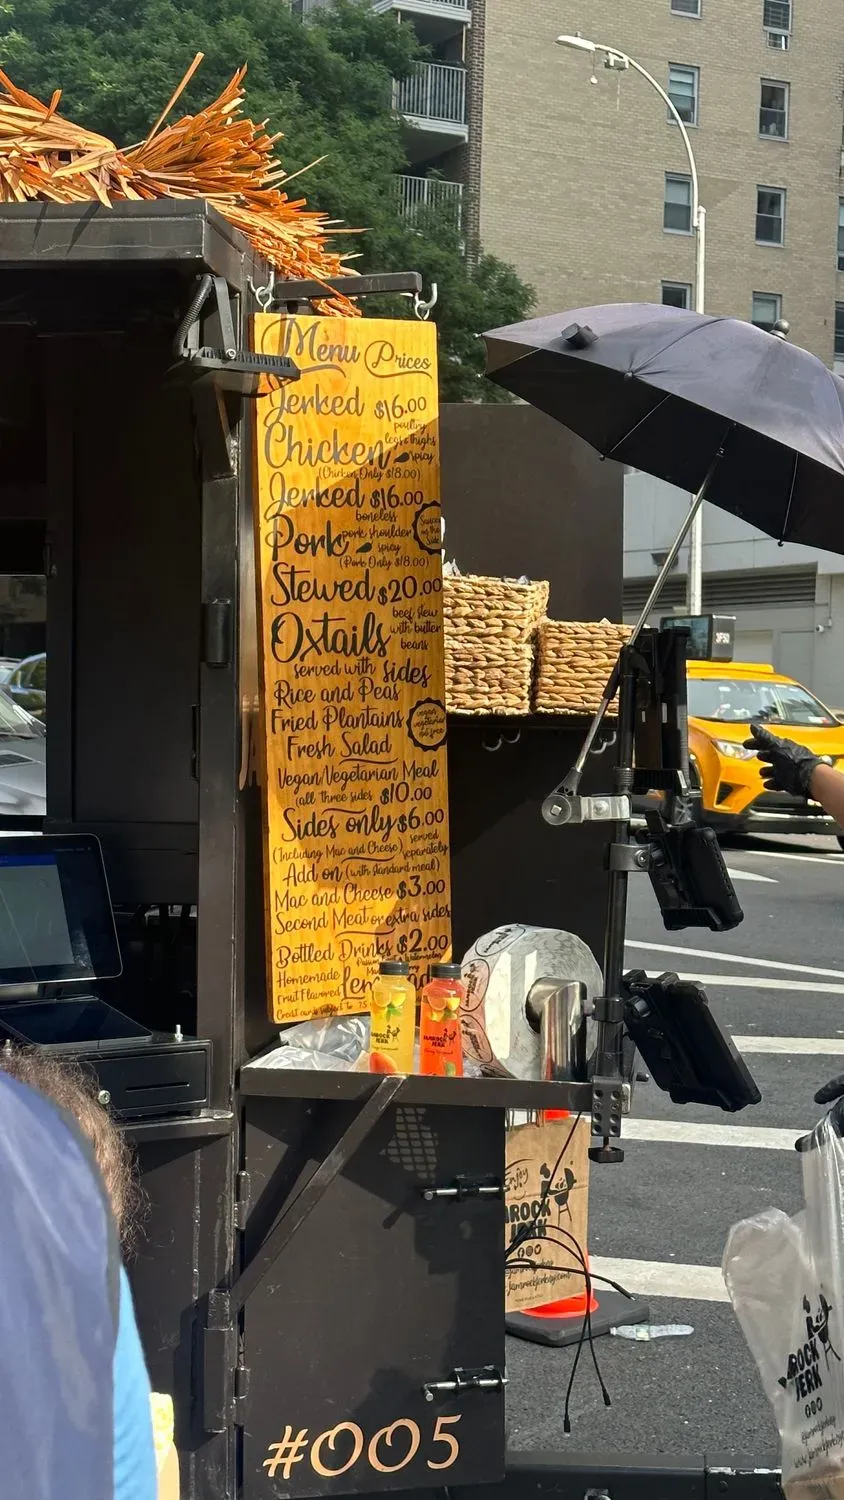 Menu Prices
Jerked $16.00
poultry
legs & thighs
Chicken spicy
(Chicken Only $18.00)
Jerked $16.00
boneless
pork shoulder
Pork spicy
(Pork Only $18.00)
Sauce
on the
Side
Stewed $20.00
beef stew
with butter
beans
Oxtails
served with sides
Rice and Peas
Fried Plantains
Fresh Salad
vegan
vegetarian
Vegan/Vegetarian Meal
(all three sides $10.00
Sides only $6.00
served
separately
(Including Mac and Cheese)
Add on (with standard meal)
Mac and Cheese $3.00
Second Meat or extra sides
Bottled Drinks $2.00
Homemade
Fruit Flavored
JAMROCK
JERK
JAMROCK
JERK
3F50
Enjoy
MROCK
JERK
#005
ROCK
JERK